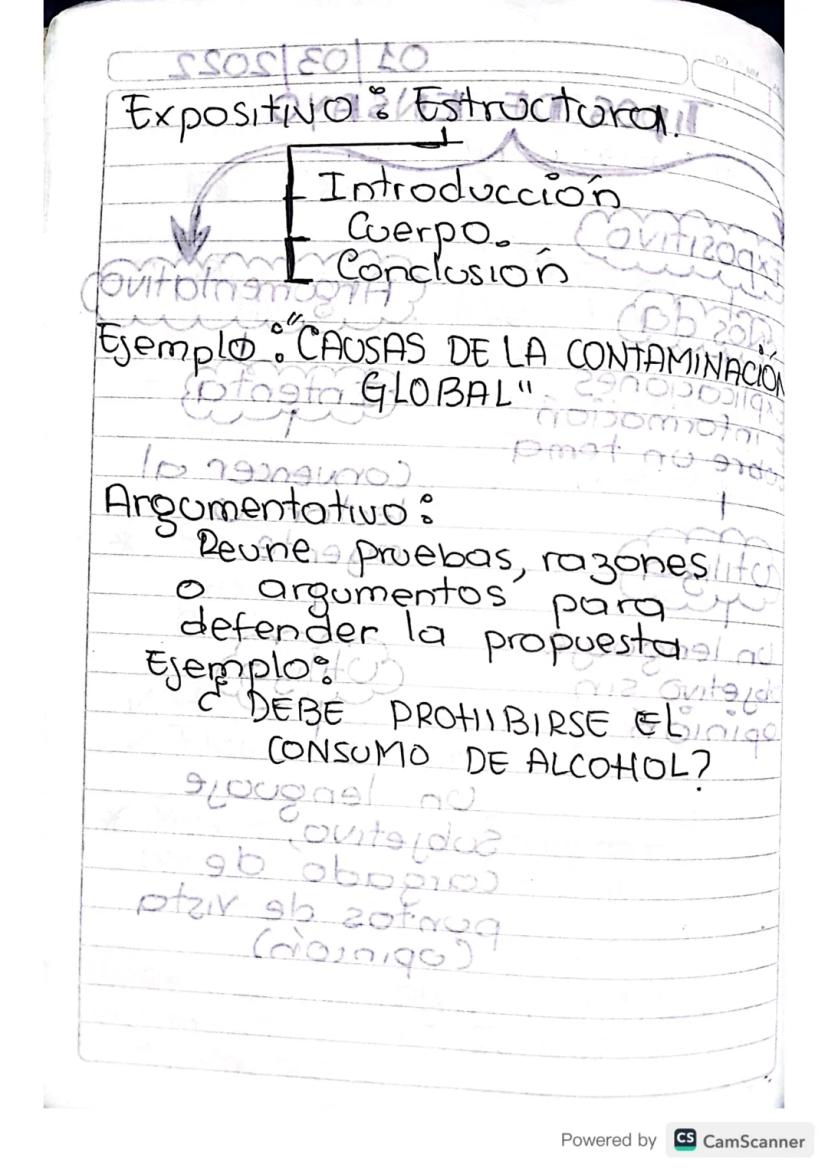 Expositivo: Estructura.
Introducción
Cuerpo.
Conclusión
Ejemplo: "CAUSAS DE LA CONTAMINACIÓN
GLOBAL"
Argumentativo:
Reune pruebas, razones
o argumentos para
defender la propuesta
Ejemplo:
¿ DEBE PROHIBIRSE EL
CONSUMO DE ALCOHOL?
Powered by CS CamScanner